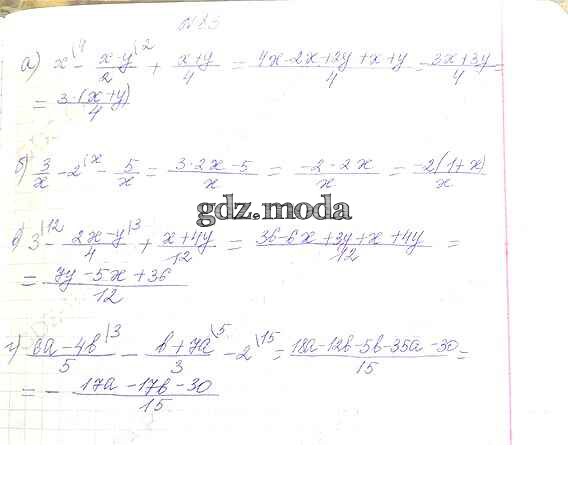 № 85
а) x\4 - (x-y)/2\2 + (x+y)/4 = (4x-2x+2y+x+y)/4 = (3x+3y)/4 =
= 3·(x+y)/4
б) 3/x - 2\x - 5/x = (3-2x-5)/x = (-2-2x)/x = -2(1+x)/x
gdz.moda
в) 3\12 - (2x-y)/4\3 + (x+4y)/12 = (36-6x+3y+x+4y)/12 =
= (7y-5x+36)/12
г) (6a-4b)/5\3 - (b+7a)/3\5 - 2\15 = (18a-12b-5b-35a-30)/15 =
= - (17a-17b-30)/15